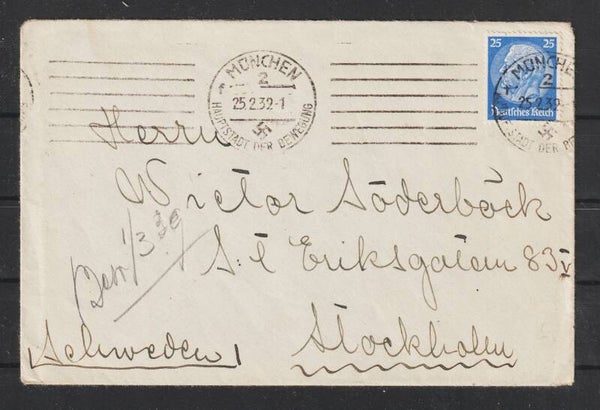 MÜNCHEN
2
25.2.39-1
HAUPTSTADT DER BEWEGUNG
25 25
Deutsches Reich
MÜNCHEN
2
25.2.39-
STADT DER BE
Herrn
Wictor Söderböck
S:t Eriksgatan 83 v
Stockholm
Schweden
1/3 39